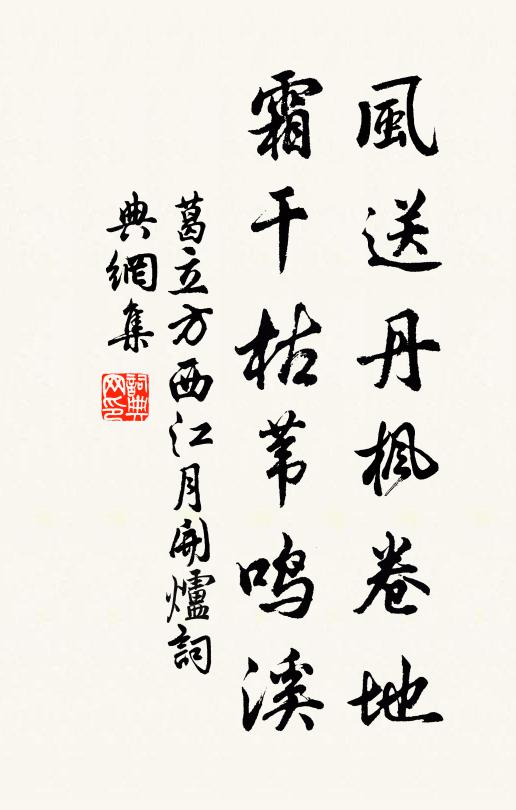 風送丹楓卷地
霜干枯苇鸣溪
葛立方西江月開爐詞
典網集
詞典
网印